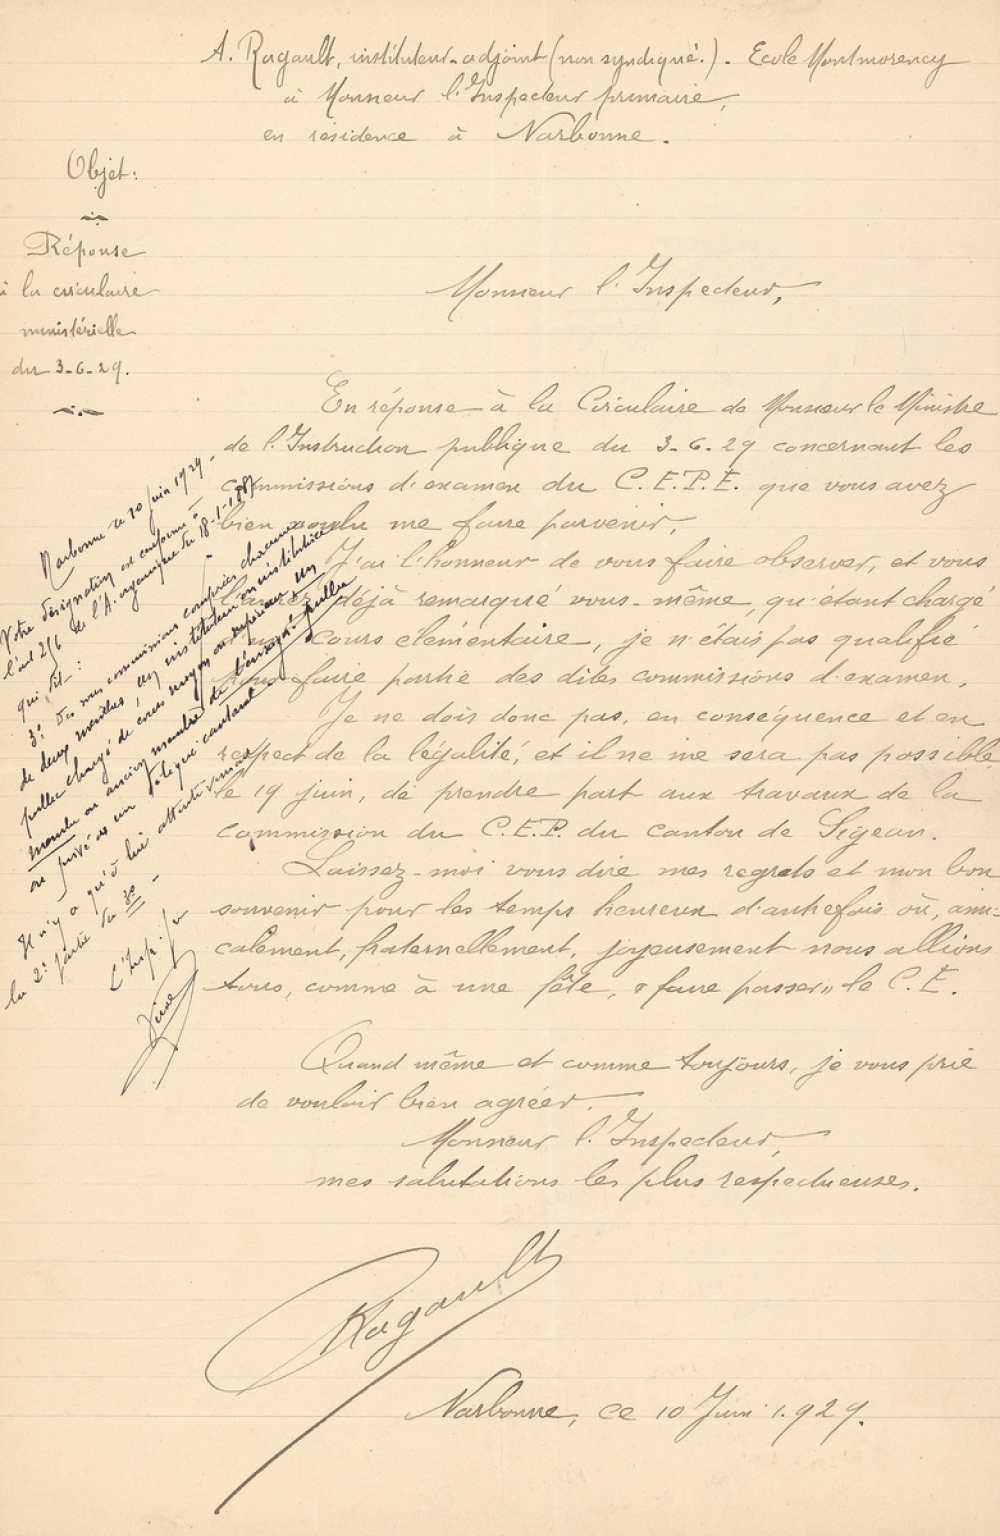 A. Ragault, instituteur-adjoint (non syndiqué.) - Ecole Montmorency
à Monsieur l'Inspecteur primaire,
en résidence à Narbonne.
Objet:
Réponse
à la circulaire
ministérielle
du 3-6-29.
Monsieur l'Inspecteur,
En réponse à la Circulaire de Monsieur le Ministre
de l'Instruction publique du 3-6-29 concernant les
commissions d'examen du C.E.P.E. que vous avez
bien voulu me faire parvenir,
J'ai l'honneur de vous faire observer, et vous
l'aurez déjà remarqué vous-même, qu'étant chargé
du cours élémentaire, je n'étais pas qualifié
pour faire partie des dites commissions d'examen.
Je ne dois donc pas, en conséquence et en
respect de la légalité, et il ne me sera pas possible,
le 19 juin, de prendre part aux travaux de la
commission du C.E.P. du canton de Sigean.
Laissez-moi vous dire mes regrets et mon bon
souvenir pour les temps heureux d'autrefois où, ami-
calement, fraternellement, joyeusement nous allions
tous, comme à une fête, "faire passer" le C.E.
Quand même et comme toujours, je vous prie
de vouloir bien agréer.
Monsieur l'Inspecteur,
mes salutations les plus respectueuses.
Ragault
Narbonne, ce 10 Juin 1.929.
Narbonne le 10 juin 1929.
Votre désignation est conforme à
l'art 256 de l'A. organique du 18-1-1887
qui dit :
3º: Des sous commissions comprises chacune
de deux membres, un instituteur ou institutrice
public chargé de cours moyen ou supérieur, un
membre ou ancien membre de l'enseignt public
ou privé ou un délégué cantonal
Il n'y a qu'à lire attentivement
la 2e partie du 3º -
L'Insp. pr